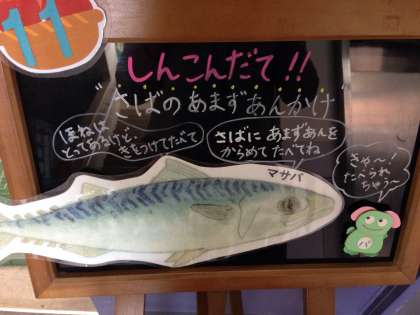 11
しんこんだて!!
"さばのあまずあんかけ"
ほねは
とってあるけど、
きをつけてたべて
さばにあまずあんを
からめてたべてね
マサバ
きゃ〜!
たべられ
ちゃう〜